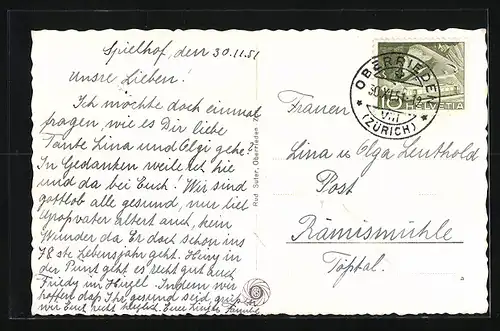 Spielhof, den 30.11.51
Unsre Lieben!
Ich möchte doch einmal
fragen, wie es Dir liebe
Tante Lina und Olgi gehe?
In Gedanken weile ich hie
und da bei Euch! Wir sind
gottlob alle gesund, nur lieb
Uropvater altert auch, kein
Wunder da Er doch schon ins
78 ste Lebensjahr geht. Heiny in
der Punt geht es recht gut auch
Friedy im Hirzel. Indem wir
hoffen daß Ihr gesund seid, grüßen
wir Euch recht herzlich. Eure
Rud. Suter, Oberrieden
OBERRIEDEN
30.XI.51-12
VIII
(ZÜRICH)
10 HELVETIA
Frauen
Lina u. Olga Leuthold
Post
Rämismühle
Tößtal.